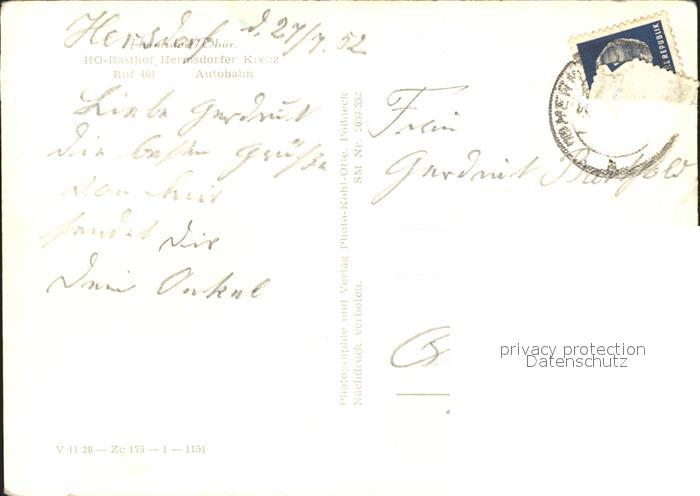 Hersdorf d. 27/7. 52
Thür.
HO-Rasthof Hermsdorfer Kreuz
Ruf 461 Autobahn
Liebe Gerdrut
die besten Grüße
von hier
sendet dir
Dein Onkel
Photographie und Verlag Photo-Kohl-Otte, Pößneck
Nachdruck verboten. SM Nr. 1057 352
Frln
Gerdruit
REPUBLIK
privacy protection
Datenschutz
V 11/28 — Ze 175 — 1 — 1151